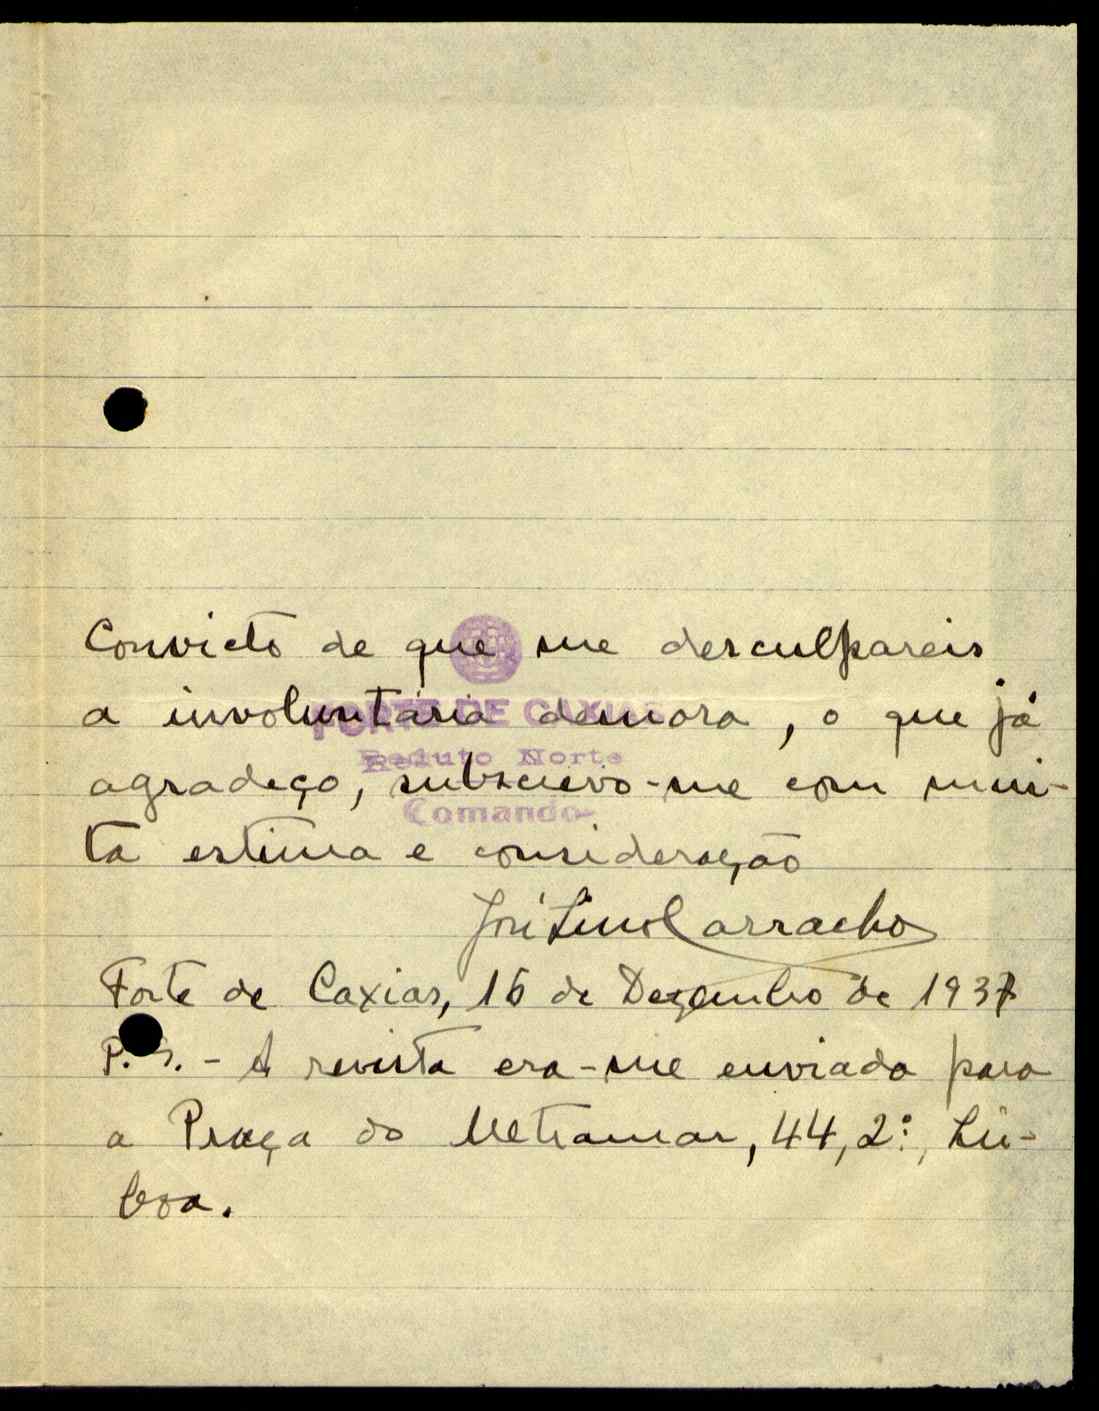 Convicto de que me desculpareis
a involuntária demora, o que já
FORTE DE CAXIAS
Reduto Norte
agradeço, subscrevo-me com mui-
Comando
ta estima e consideração
José Lino Carracho
Forte de Caxias, 16 de Dezembro de 1937
P.S. - A revista era-me enviada para
a Praça do Ultramar, 44, 2º, Lis-
boa.